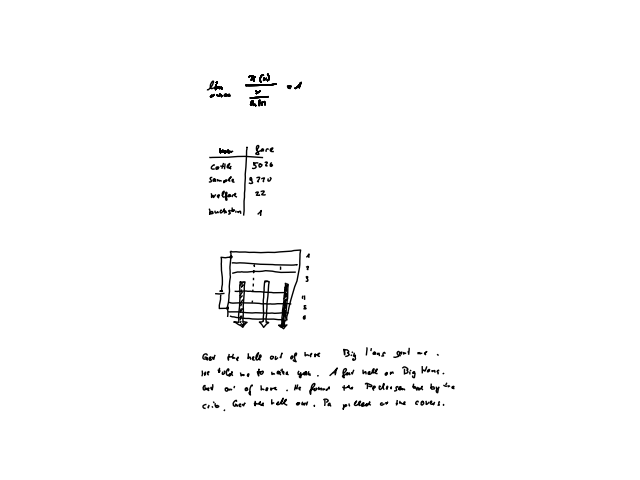 lim π(x) / (x / ln) = 1
fare
cattle 5026
sample 9770
welfare 22
buckskin 1
1
2
3
Get the hell out of here Big Hans sent me.
He told me to wake you. A fat hell on Big Hans.
Get out of here. He found the Pedersen kid by the
crib. Get the hell out. Pa pulled at the covers.